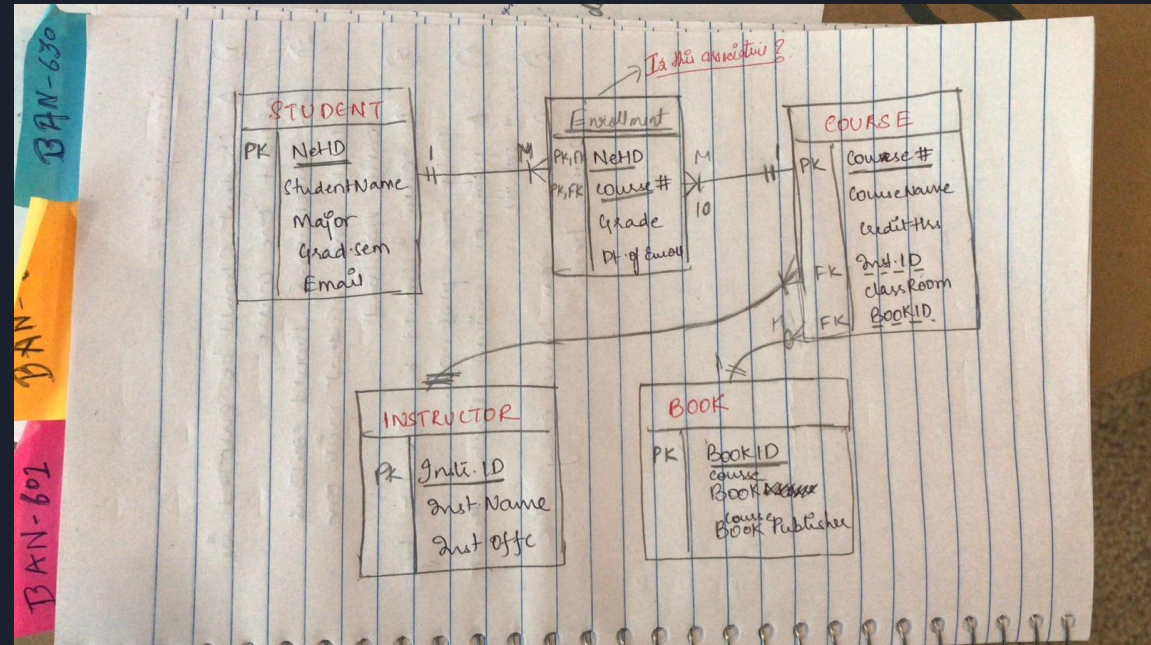 BAN-630
BAN-
BAN-601
Is this associative?
STUDENT
PK NetID
StudentName
Major
Grad.sem
Email
1
M
Enrollment
PK,FK NetID
PK,FK course #
Grade
Dt. of Enroll
M
10
1
COURSE
PK Course #
CourseName
CreditHrs
FK Inst.ID
classRoom
FK BOOKID
M
1
INSTRUCTOR
PK Insti.ID
Inst.Name
Inst offc
BOOK
PK BookID
course
Book
course
Book Publisher